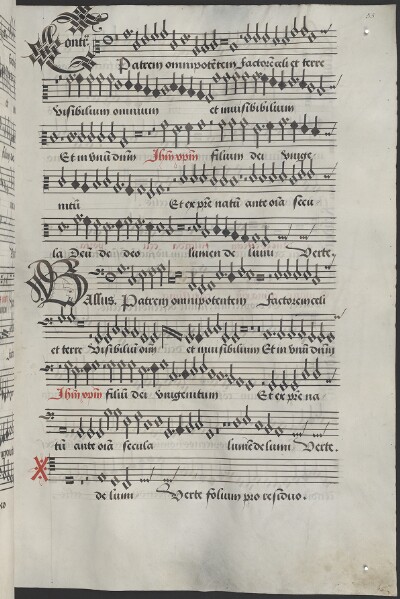 Contr̃
Patrem omnipotẽtem factorẽ celi et terre
visibilium omnium et inuisibilium
Et in vnũ dñm Jhm̃ xpm̃ filium dei vnige
nitũ Et ex pr̃e natũ ante oĩa secu
la Deũ de deo lumen de lumi Verte.
Bassus. Patrem omnipotentem Factorem celi
et terre Visibiliũ oĩm et inuisibilium Et in vnũ dñm
Jhm̃ xpm̃ filiũ dei vnigenitum Et ex pr̃e na
tũ ante oĩa secula lumẽ de lumi Verte.
de lumi Verte folium pro residuo.